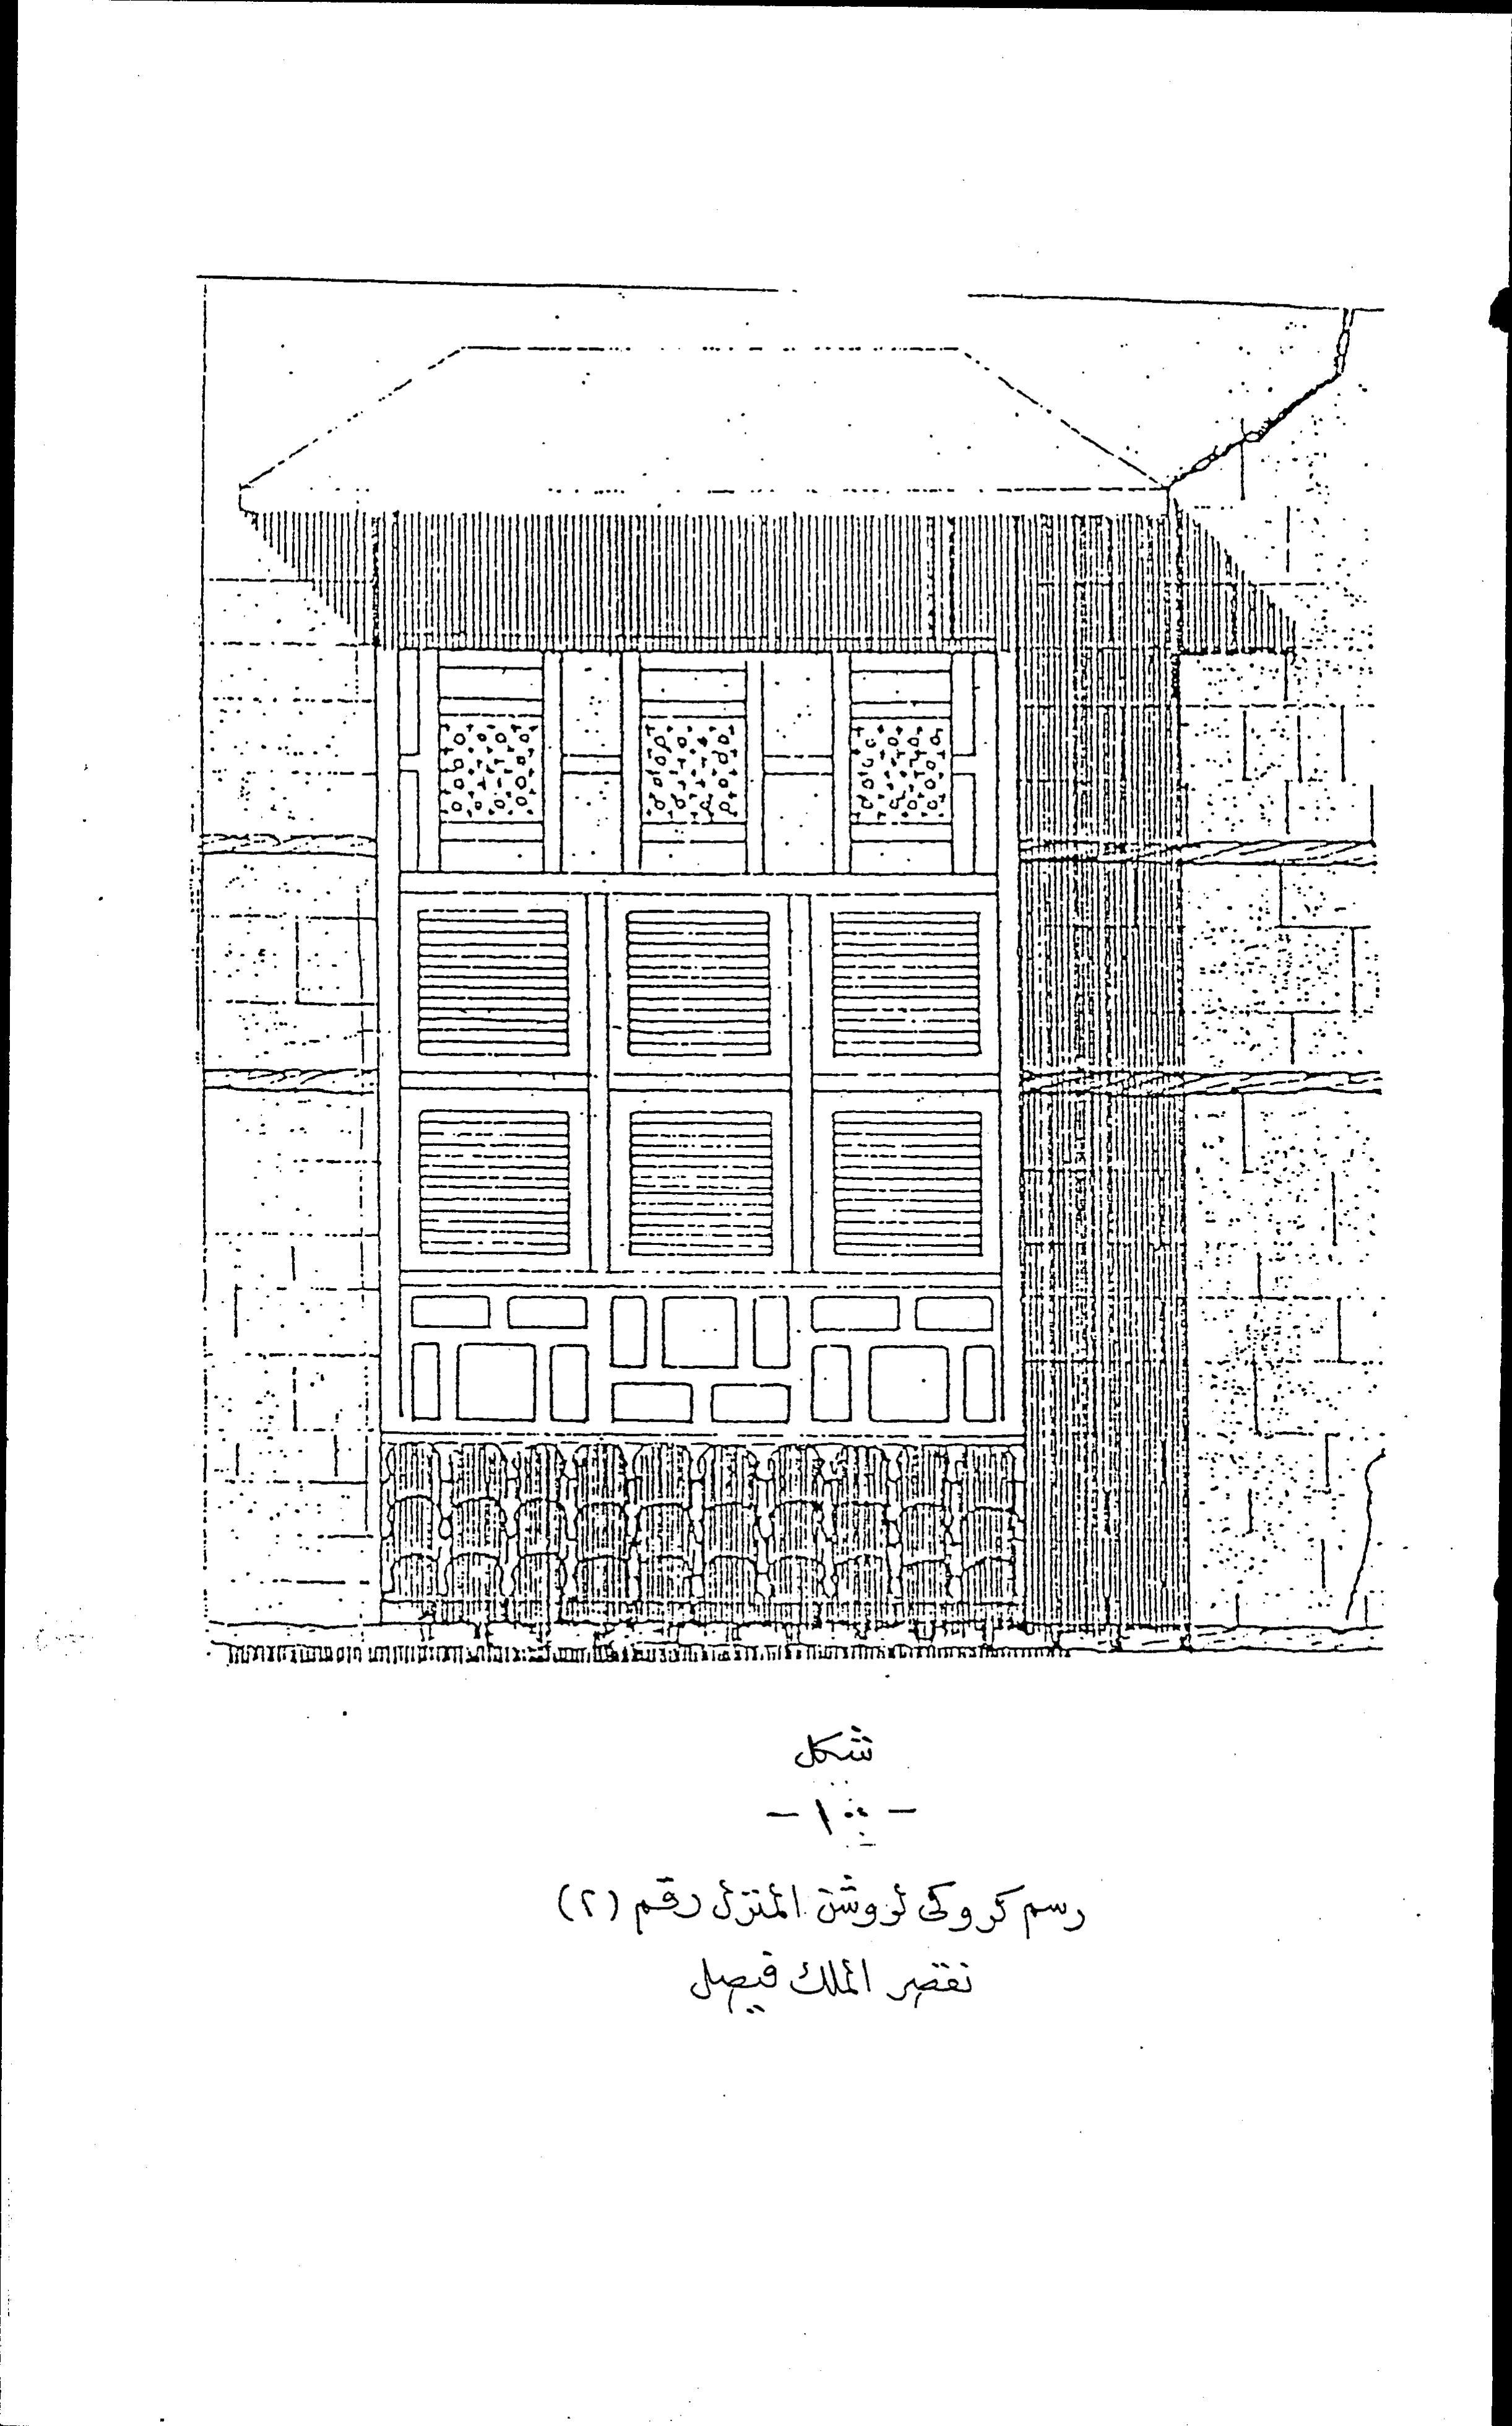 شكل
- ١٠٠ -
رسم كروكى لروشن المنزل رقم (٢)
بقصر الملك فيصل